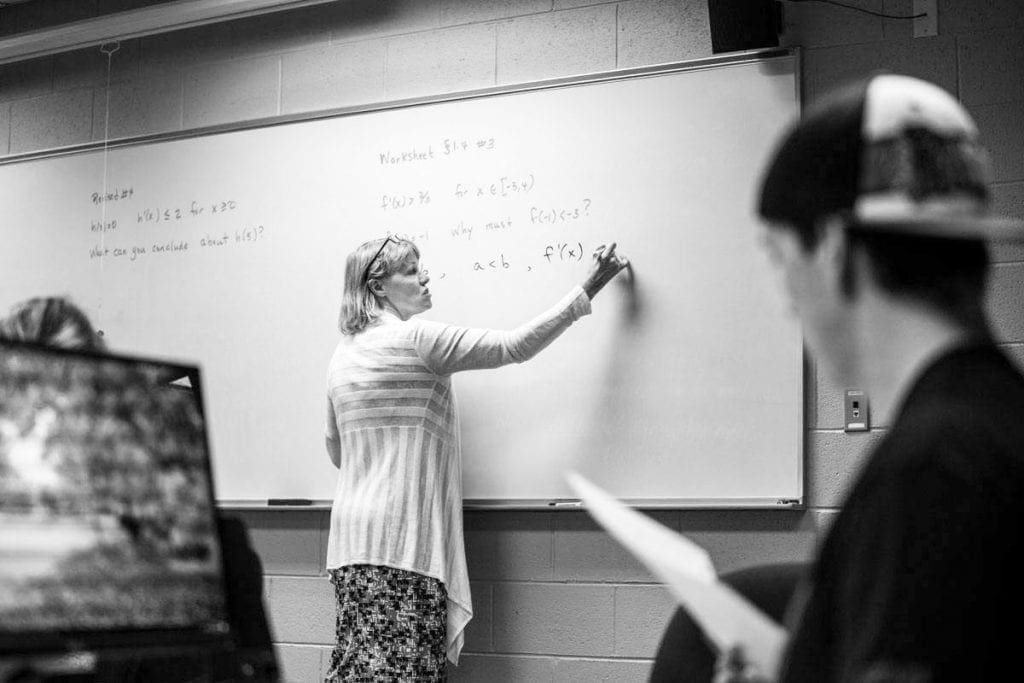 Revised #4
h'(x) ≤ 2 for x ≥ 0
What can you conclude about h(5)?
Worksheet §1.4 #3
f'(x) for x ∈
-1 why must f(-1) < -3 ?
, a < b , f'(x)